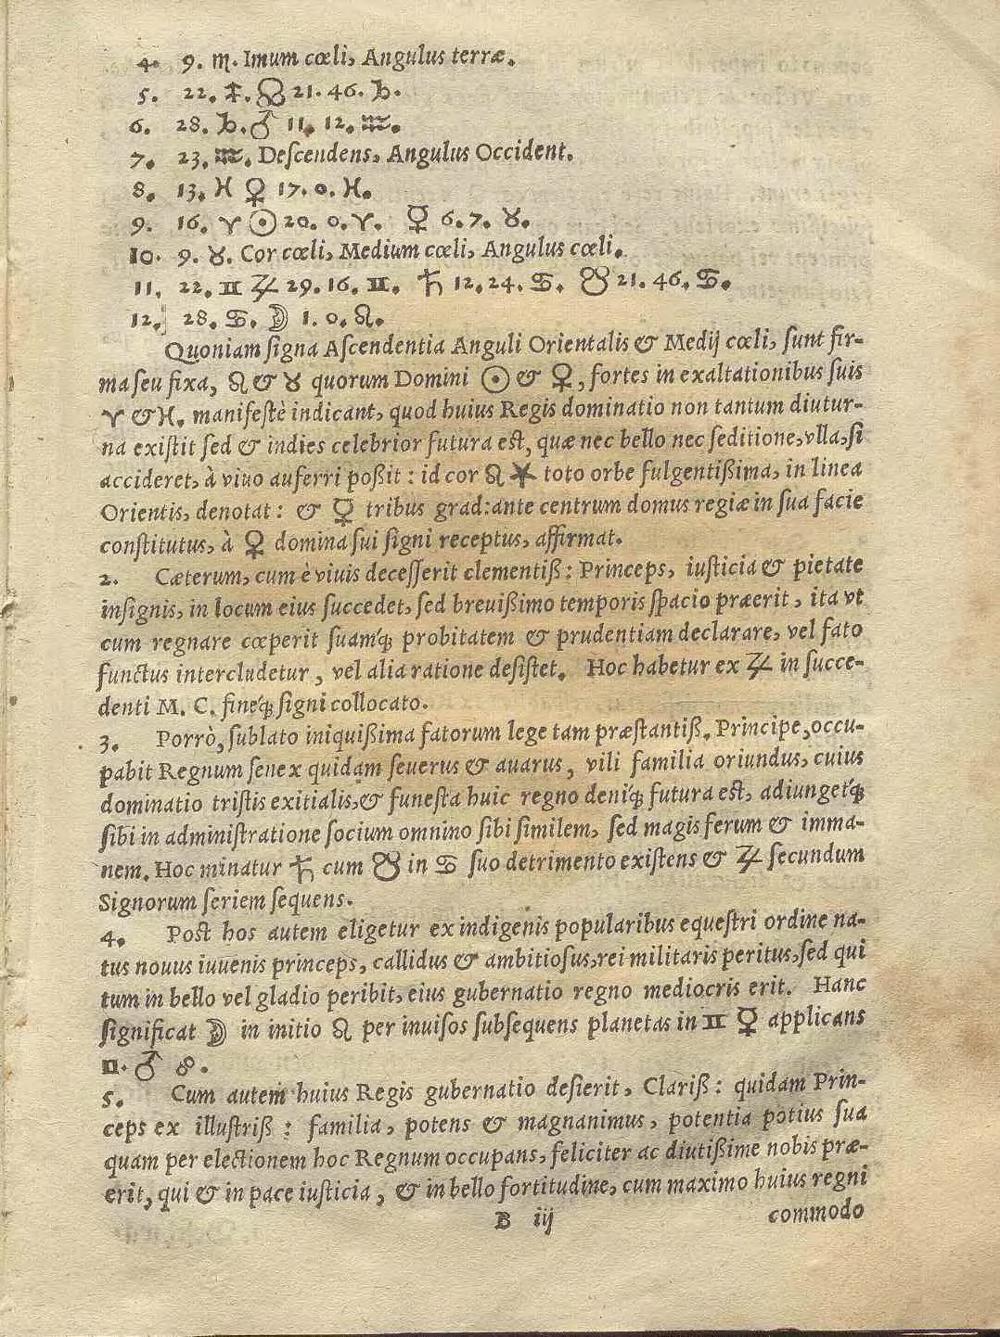 4. 9. ♏. Imum cœli, Angulus terræ.
5. 22. ♐. ☊ 21. 46. ♑.
6. 28. ♑. ♂ 11. 12. ♒.
7. 23. ♒. Deſcendens, Angulus Occident.
8. 13. ♓ ♀ 17. 0. ♓.
9. 16. ♈ ☉ 20. 0. ♈. ☿ 6. 7. ♉.
10. 9. ♉. Cor cœli, Medium cœli, Angulus cœli.
11. 22. ♊ ♃ 29. 16. ♊. ♄ 12. 24. ♋. ☋ 21. 46. ♋.
12. 28. ♋. ☽ 1. 0. ♌.
Quoniam ſigna Aſcendentia Anguli Orientalis & Medij cœli, ſunt fir-
ma ſeu fixa, ♌ & ♉ quorum Domini ☉ & ♀, fortes in exaltationibus ſuis
♈ & ♓. manifeſtè indicant, quod huius Regis dominatio non tantum diutur-
na exiſtit ſed & indies celebrior futura eſt, quæ nec bello nec ſeditione, vlla, ſi
accideret, à viuo auferri poßit : id cor ♌ ★ toto orbe fulgentißima, in linea
Orientis, denotat : & ☿ tribus grad: ante centrum domus regiæ in ſua facie
conſtitutus, à ♀ domina ſui ſigni receptus, affirmat.
2. Cæterum, cum è viuis deceſſerit clementiß: Princeps, iuſticia & pietate
inſignis, in locum eius ſuccedet, ſed breuißimo temporis ſpacio præerit, ita vt
cum regnare cœperit ſuamq́; probitatem & prudentiam declarare, vel fato
functus intercludetur, vel alia ratione deſiſtet. Hoc habetur ex ♃ in ſucce-
denti M. C. fineq́; ſigni collocato.
3. Porrò, ſublato iniquißima fatorum lege tam præſtantiß. Principe, occu-
pabit Regnum ſenex quidam ſeuerus & auarus, vili familia oriundus, cuius
dominatio triſtis exitialis, & funeſta huic regno deniq́; futura eſt, adiungetq́;
ſibi in adminiſtratione ſocium omnino ſibi ſimilem, ſed magis ferum & imma-
nem. Hoc minatur ♄ cum ☋ in ♋ ſuo detrimento exiſtens & ♃ ſecundum
Signorum ſeriem ſequens.
4. Poſt hos autem eligetur ex indigenis popularibus equeſtri ordine na-
tus nouus iuuenis princeps, callidus & ambitioſus, rei militaris peritus, ſed qui
tum in bello vel gladio peribit, eius gubernatio regno mediocris erit. Hanc
ſignificat ☽ in initio ♌ per inuiſos ſubſequens planetas in ♊ ☿ applicans
□. ♂ ☍.
5. Cum autem huius Regis gubernatio deſierit, Clariß: quidam Prin-
ceps ex illuſtriß: familia, potens & magnanimus, potentia potius ſua
quam per electionem hoc Regnum occupans, feliciter ac diutißime nobis præ-
erit, qui & in pace iuſticia, & in bello fortitudine, cum maximo huius regni
B iij commodo